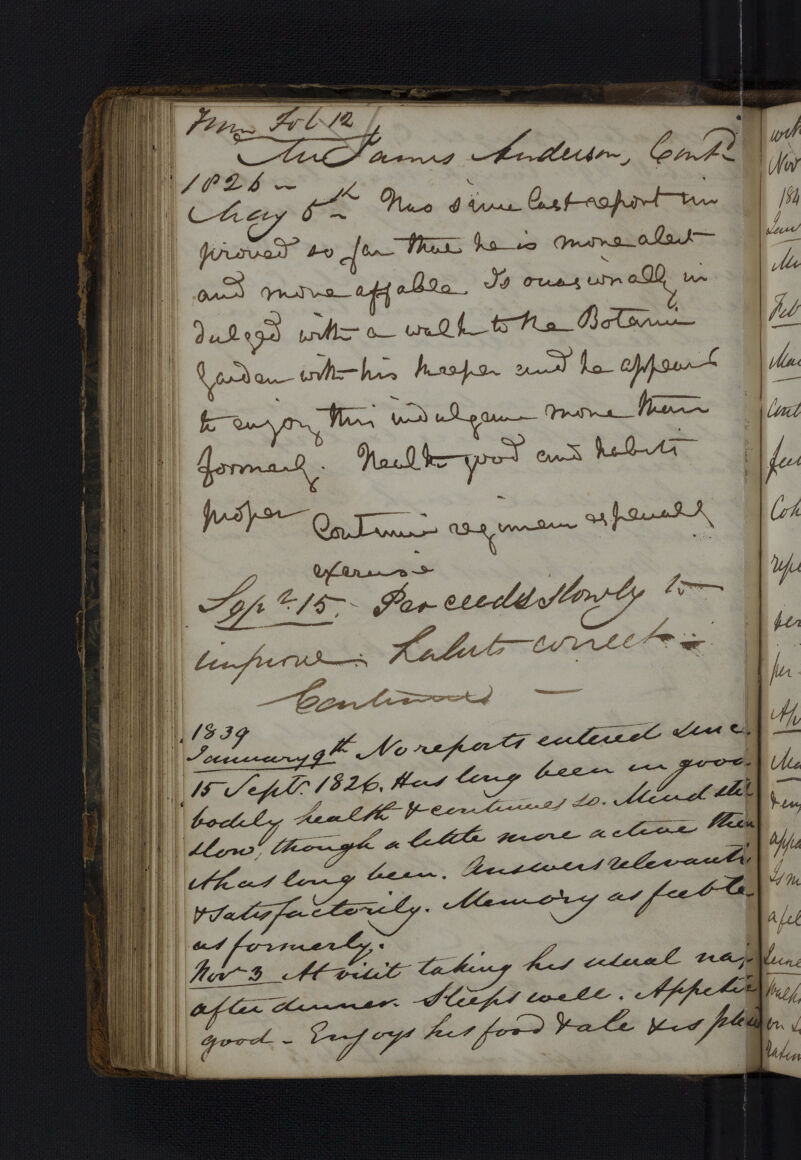 From Fol 12
Mr James Anderson, Contd
1826 –
May 5th Has since last report im
proved so far that he is more alert
and more affable. Is occasionally in
dulged with a walk to the Botanic
Garden with his keeper and he appears
to enjoy this indulgence more than
formerly. Health good and habits
proper
Continue regimen especially
exercise
Sepr. 15. Proceeds slowly to
improve. habits correct –
Continued –
1839
January 9th No reports entered since
15 Septr. 1826. Has long been in good
bodily health & continues so. Mind still
slow, though a little more active than
it has long been. Answers relevantly
& satisfactorily. Memory as feeble
as formerly.
Novr 3 At visit taking his usual nap
after dinner. Sleeps well. Appetite
good – Enjoys his food & ale & is pleased
with
Nov
184
Feb
Mar
Cont
repe
per
per
Ap
& enj
appa
Is m
a fel
June
walks
on